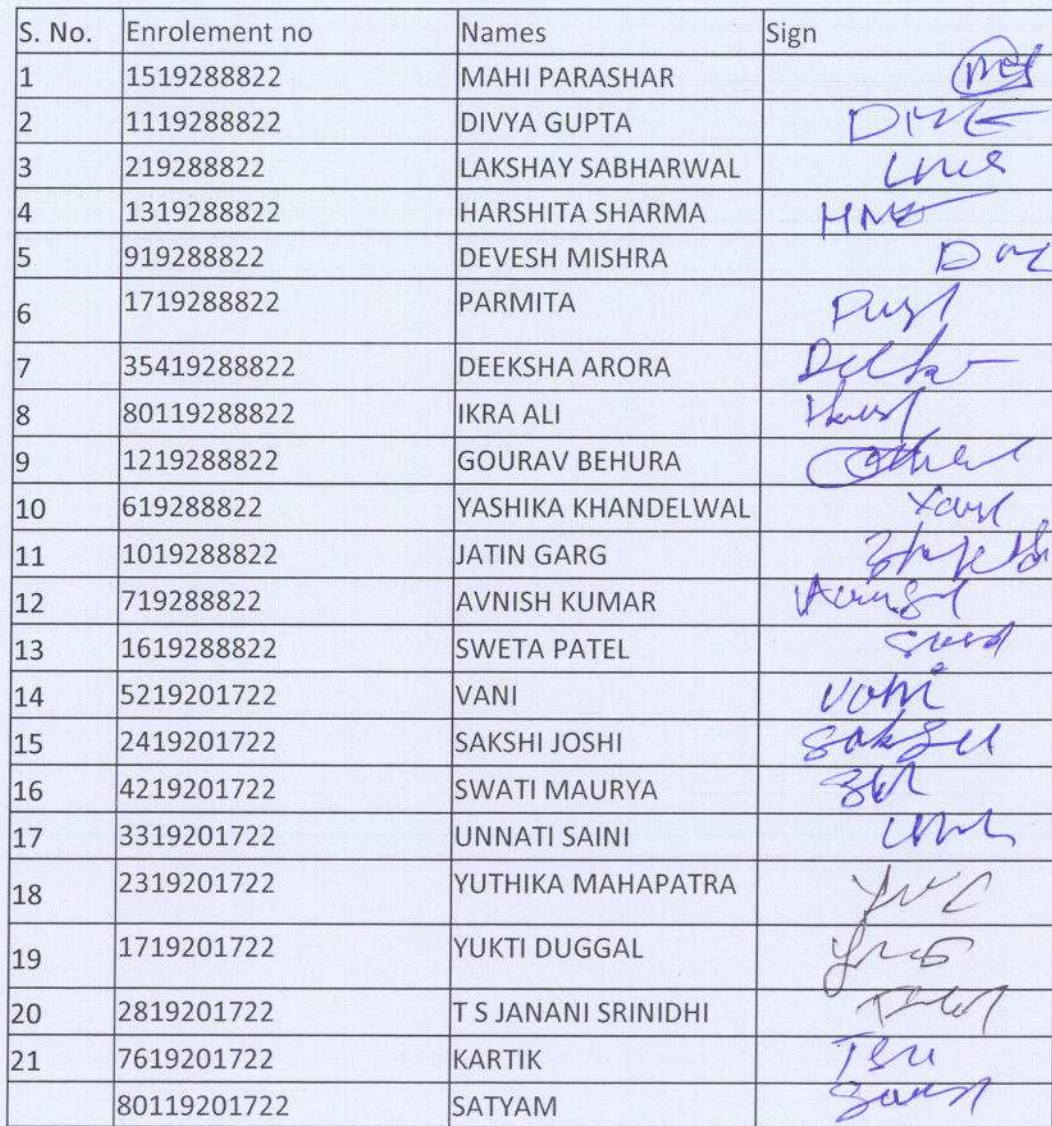 S. No. Enrolement no Names Sign
1 1519288822 MAHI PARASHAR
2 1119288822 DIVYA GUPTA
3 219288822 LAKSHAY SABHARWAL
4 1319288822 HARSHITA SHARMA
5 919288822 DEVESH MISHRA
6 1719288822 PARMITA
7 35419288822 DEEKSHA ARORA
8 80119288822 IKRA ALI
9 1219288822 GOURAV BEHURA
10 619288822 YASHIKA KHANDELWAL
11 1019288822 JATIN GARG
12 719288822 AVNISH KUMAR
13 1619288822 SWETA PATEL
14 5219201722 VANI Vani
15 2419201722 SAKSHI JOSHI
16 4219201722 SWATI MAURYA
17 3319201722 UNNATI SAINI
18 2319201722 YUTHIKA MAHAPATRA
19 1719201722 YUKTI DUGGAL
20 2819201722 T S JANANI SRINIDHI
21 7619201722 KARTIK
80119201722 SATYAM